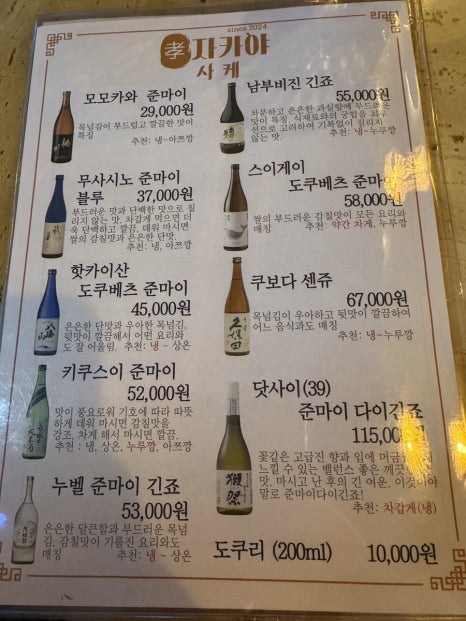 since.2024
孝 자카야
사케
모모카와 준마이
29,000원
목넘김이 부드럽고 깔끔한 맛이
특징
추천: 냉~아쯔깡
무사시노 준마이
블루 37,000원
부드러운 맛과 단백한 맛으로 질
리지 않는 맛, 차갑게 먹으면 더
욱 단백하고 깔끔, 데워 마시면
쌀의 감칠맛과 은은한 단맛,
추천: 냉, 아쯔깡
핫카이산
도쿠베츠 준마이
45,000원
은은한 단맛과 우아한 목넘김,
뒷맛이 깔끔해서 어떤 요리와
도 잘 어울림. 추천: 냉~상온
키쿠스이 준마이
52,000원
맛이 풍요로워 기호에 따라 따뜻
하게 데워 마시면 감칠맛을
강조, 차게 해서 마시면 깔끔.
추천 : 냉, 상온, 누루깡, 아쯔깡
누벨 준마이 긴죠
53,000원
은은한 달큰함과 부드러운 목넘
김, 감칠맛이 기름진 요리와도
매칭 추천: 냉~상온
남부비진 긴죠
55,000원
차분하고 은은한 과실향에 부드러운
맛이 특징. 식재료와의 궁합을 최우
선으로 고려하여 기복없이 질리지
않는 맛. 추천: 냉~누루깡
스이게이
도쿠베츠 준마이
58,000원
쌀의 부드러운 감칠맛이 모든 요리와
매칭 추천: 약간 차게, 누루깡
쿠보다 센쥬
67,000원
목넘김이 우아하고 뒷맛이 깔끔하여
어느 음식과도 매칭
추천: 냉~누루깡
久保田
닷사이(39)
준마이 다이긴죠
115,000원
꽃같은 고급진 향과 입에 머금
느낄 수 있는 밸런스 좋은 깨끗
맛, 마시고 난 후의 긴 여운, 이것이야
말로 준마이다이긴죠!
추천: 차갑게(냉)
獺祭
도쿠리 (200ml) 10,000원